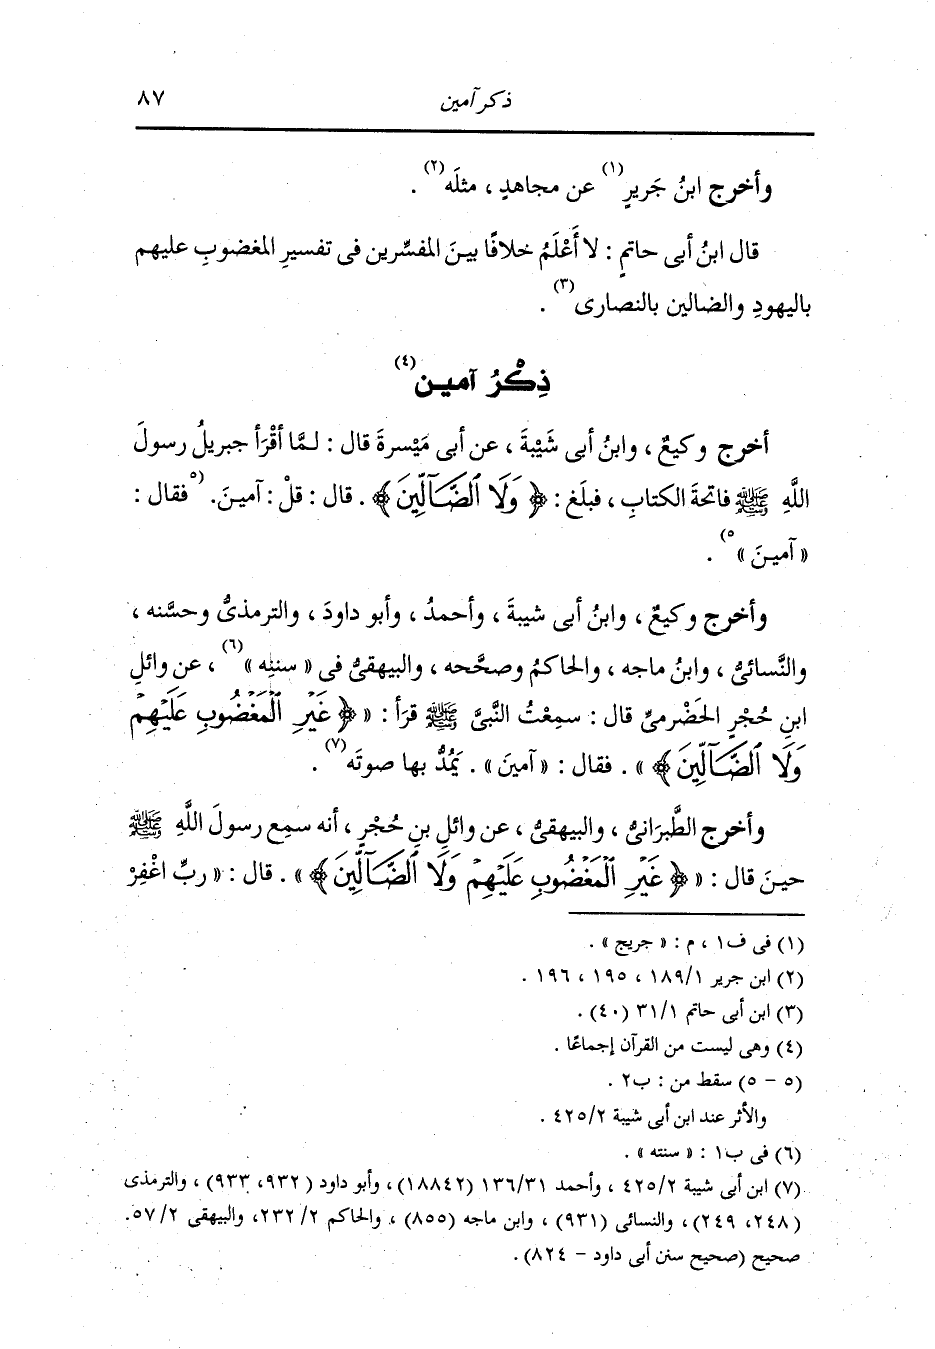 ذكر آمين ٨٧
وأخرج ابنُ جَريرٍ(١) عن مجاهدٍ ، مثلَه(٢) .
قال ابنُ أبى حاتمٍ : لا أَعْلَمُ خلافًا بينَ المفسِّرين فى تفسيرِ المغضوبِ عليهم
باليهودِ والضالين بالنصارى(٣) .
ذِكْرُ آمين(٤)
أخرج وكيعٌ ، وابنُ أبى شَيْبةَ ، عن أبى مَيْسرةَ قال : لـمَّا أقْرَأ جبريلُ رسولَ
اللَّهِ ﷺ فاتحةَ الكتابِ ، فبلَغ : ﴿ وَلَا ٱلضَّآلِّينَ ﴾ . قال : قلْ : آمينَ. (٥ فقال :
« آمينَ » ٥) .
وأخرج وكيعٌ ، وابنُ أبى شيبةَ ، وأحمدُ ، وأبو داودَ ، والترمذىُّ وحسَّنه ،
والنَّسائىُّ ، وابنُ ماجه ، والحاكمُ وصحَّحه ، والبيهقىُّ فى « سننِه »(٦) ، عن وائلِ
ابنِ حُجْرٍ الحَضْرمىِّ قال : سمِعْتُ النَّبىَّ ﷺ قرَأ : « ﴿ غَيْرِ ٱلْمَغْضُوبِ عَلَيْهِمْ
وَلَا ٱلضَّآلِّينَ ﴾ » . فقال : « آمينَ » . يَمُدُّ بها صوتَه(٧) .
وأخرج الطَّبرَانىُّ ، والبيهقىُّ ، عن وائلِ بنِ حُجْرٍ ، أنه سمِع رسولَ اللَّهِ ﷺ
حينَ قال : « ﴿ غَيْرِ ٱلْمَغْضُوبِ عَلَيْهِمْ وَلَا ٱلضَّآلِّينَ ﴾ » . قال : « ربِّ اغْفِرْ
(١) فى ف١ ، م : « جريج » .
(٢) ابن جرير ١٨٩/١ ، ١٩٥ ، ١٩٦ .
(٣) ابن أبى حاتم ٣١/١ (٤٠) .
(٤) وهى ليست من القرآن إجماعًا .
(٥ - ٥) سقط من : ب٢ .
والأثر عند ابن أبى شيبة ٤٢٥/٢ .
(٦) فى ب١ : « سنته » .
(٧) ابن أبى شيبة ٤٢٥/٢ ، وأحمد ١٣٦/٣١ (١٨٨٤٢) ، وأبو داود (٩٣٢، ٩٣٣) ، والترمذى
(٢٤٨، ٢٤٩) ، والنسائى (٩٣١) ، وابن ماجه (٨٥٥) ، والحاكم ٢٣٢/٢، والبيهقى ٥٧/٢.
صحيح (صحيح سنن أبى داود - ٨٢٤) .